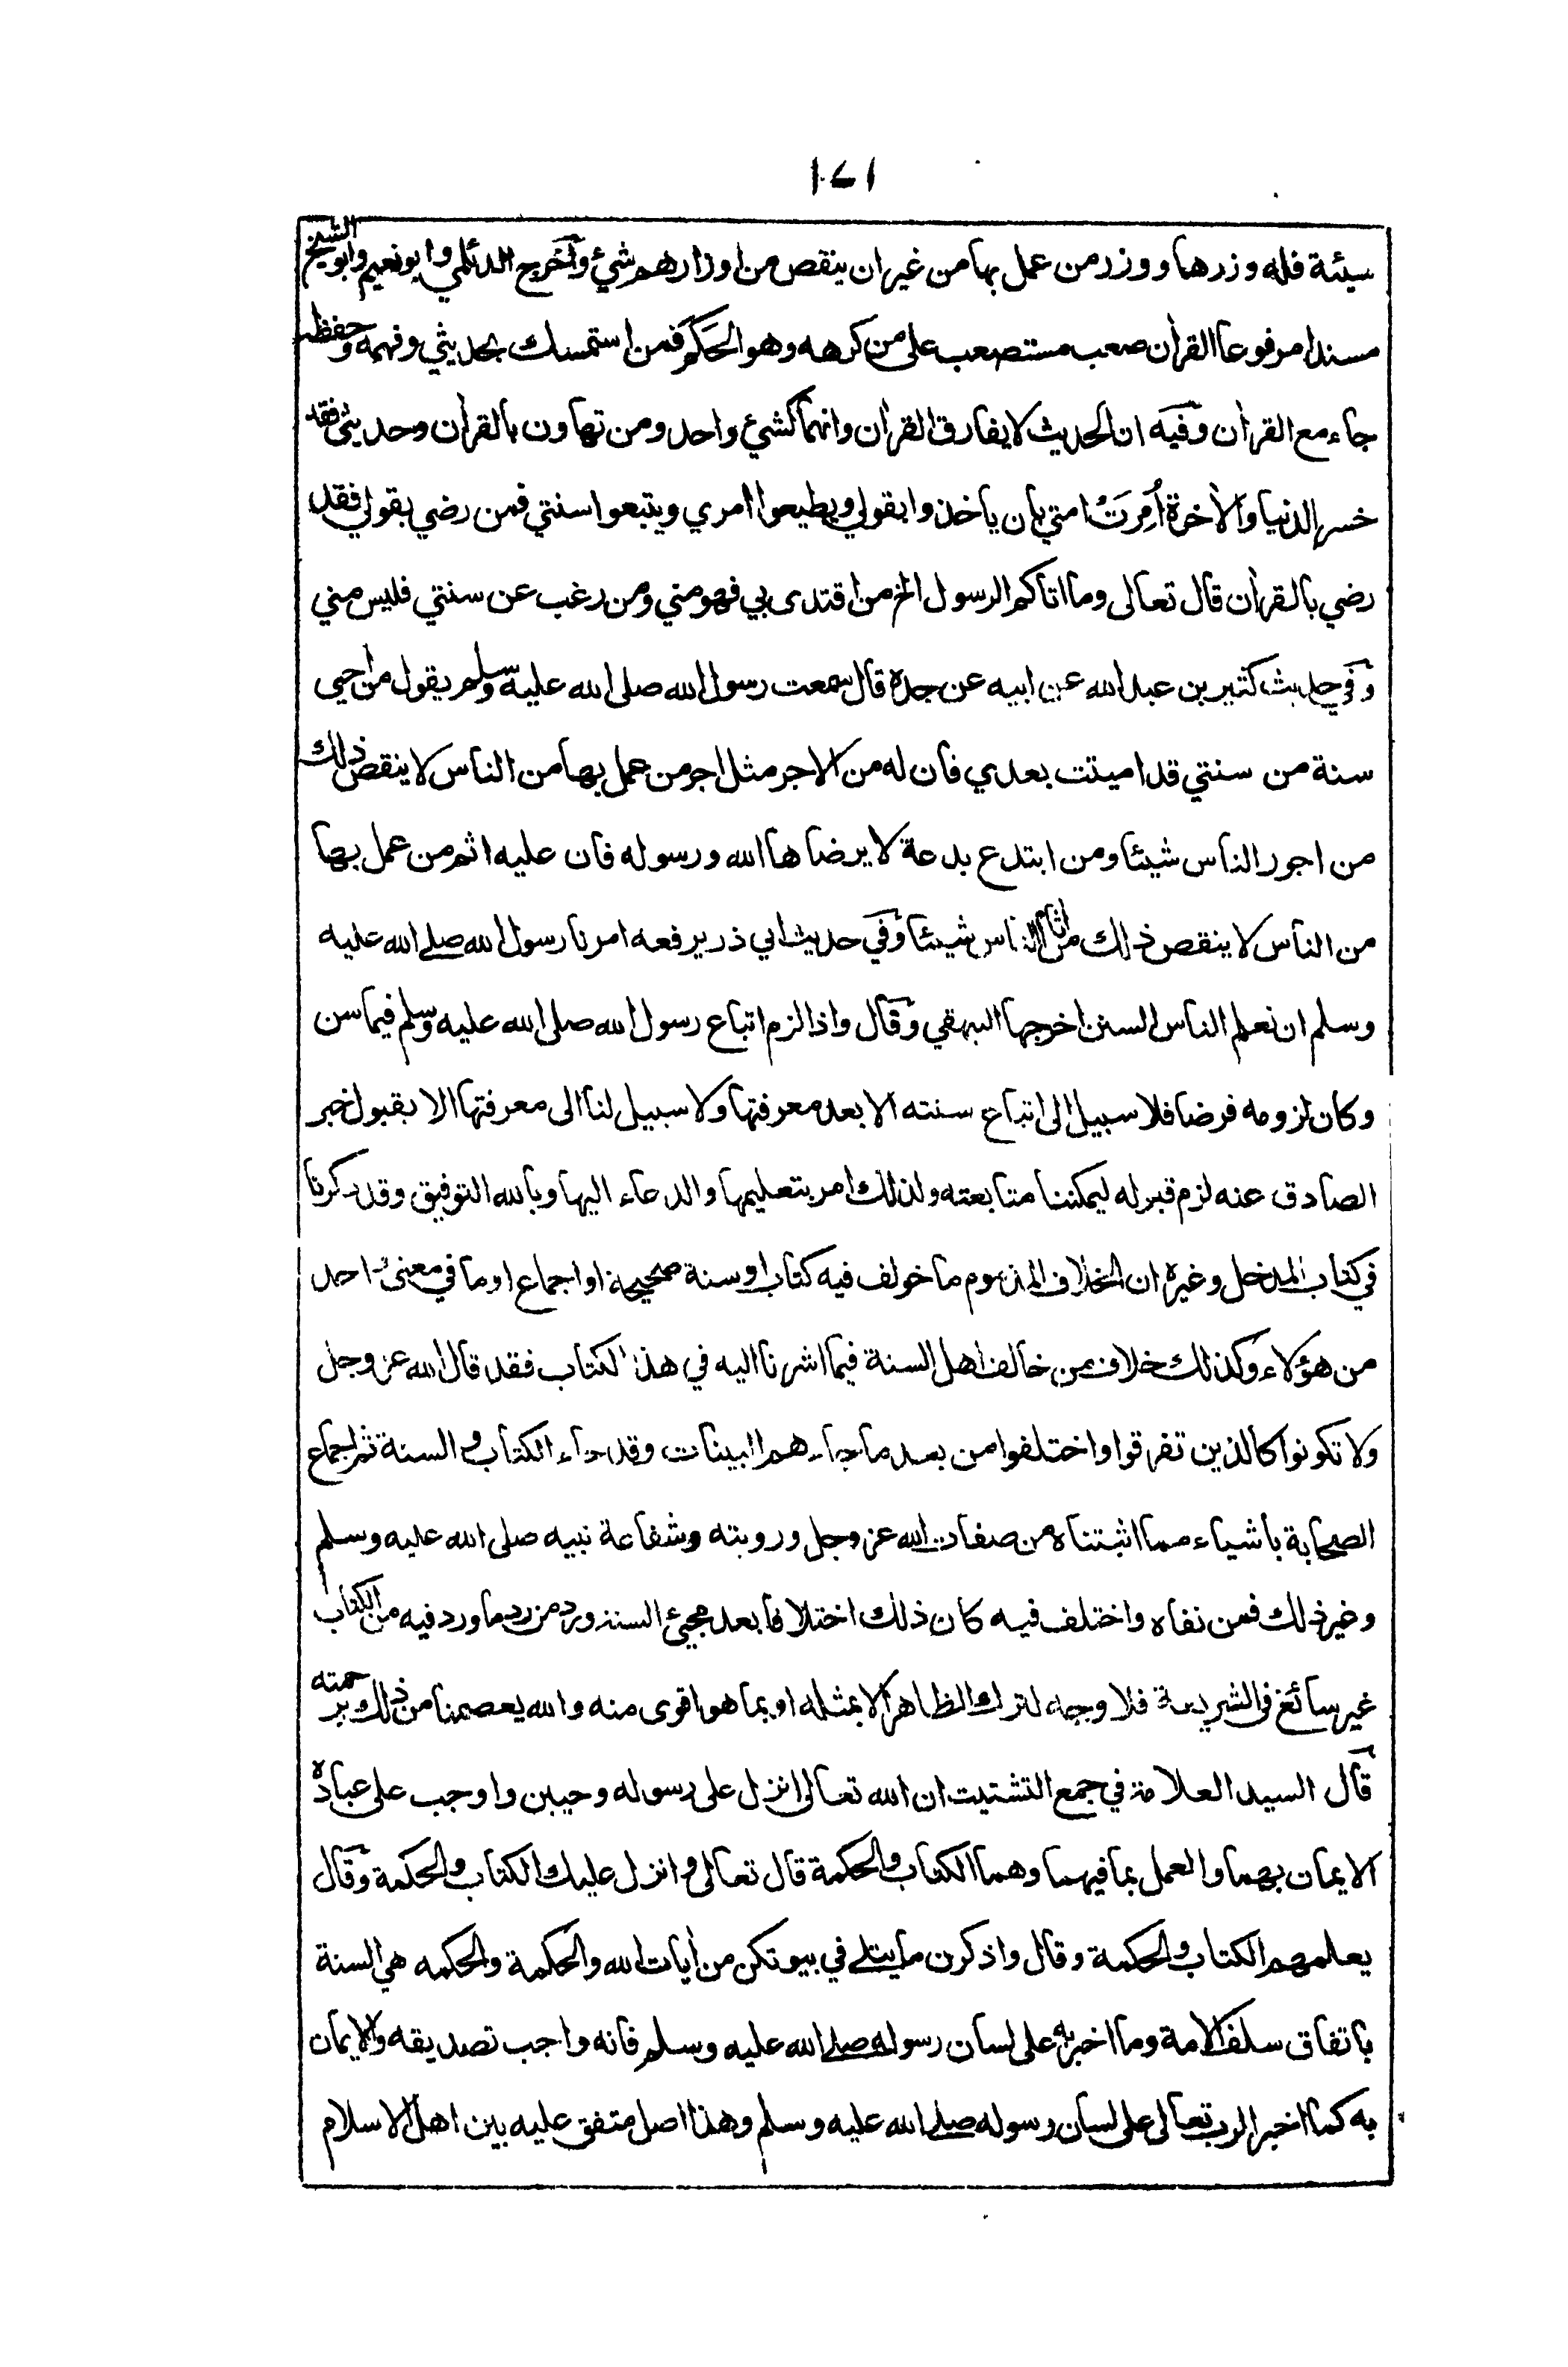 ١٧١
سيئة فله وزرها ووزر من عمل بها من غير ان ينقص من اوزارهم شيئ وأخرج الديلمي وابو نعيم وابو الشيخ
مسندا مرفوعا القرأن صعب مستصعب على من كرهه وهو الحَكَم فمن استمسك بحديثي وفهمه وحفظه
جاء مع القرأن وفيه ان الحديث لا يفارق القرأن وانهما كشيئ واحد ومن تهاون بالقرأن وحديثي فقد
خسر الدنيا والأخرة أُمِرَتْ امتي بأن يأخذوا بقولي ويطيعوا امري ويتبعوا سنتي فمن رضي بقولي فقد
رضي بالقرأن قال تعالى وما اتاكم الرسول الخ من اقتدى بي فهو مني ومن رغب عن سنتي فليس مني
وفي حديث كثير بن عبد الله عن ابيه عن جده قال سمعت رسول الله صلى الله عليه وسلم يقول من احيى
سنة من سنتي قد اميتت بعدي فان له من الاجر مثل اجر من عمل بها من الناس لا ينقص ذلك
من اجور الناس شيئا ومن ابتدع بدعة لا يرضاها الله ورسوله فان عليه اثم من عمل بها
من الناس لا ينقص ذلك من اثام الناس شيئا وفي حديث ابي ذر يرفعه امرنا رسول الله صلے الله عليه
وسلم ان نعلم الناس السنن اخرجها البيهقي وقال واذا لزم اتباع رسول الله صلى الله عليه وسلم فيما سن
وكان لزومه فرضا فلا سبيل الى اتباع سنته الا بعد معرفتها ولا سبيل لنا الى معرفتها الا بقبول خبر
الصادق عنه لزم قبوله ليمكننا متابعته ولذلك امر بتعليمها والدعاء اليها وبالله التوفيق وقد ذكرنا
في كتاب المدخل وغيره ان الخلاف المذموم ما خولف فيه كتاب او سنة صحيحة او اجماع او ما في معنى واحد
من هؤلاء وكذلك خلاف من خالف اهل السنة فيما اشرنا اليه في هذا الكتاب فقد قال الله عز وجل
ولا تكونوا كالذين تفرقوا واختلفوا من بعد ما جاءهم البينات وقد جاء الكتاب والسنة ثم اجماع
الصحابة باشياء مما اثبتناه من صفات الله عز وجل ورويته وشفاعة نبيه صلى الله عليه وسلم
وغير ذلك فمن نفاه واختلف فيه كان ذلك اختلافا بعد مجيئ السنة ورد من رد ما ورد فيه من الكتاب
غير سائغ في الشريعة فلا وجه لترك الظاهر الا بمثله او بما هو اقوى منه والله يعصمنا من ذلك برحمته
قال السيد العلامة في جمع التشتيت ان الله تعالى انزل على رسوله وحيين واوجب على عباده
الايمان بهما والعمل بما فيهما وهما الكتاب والحكمة قال تعالى وانزل عليك الكتاب والحكمة وقال
يعلمهم الكتاب والحكمة وقال واذكرن ما يتلے في بيوتكن من أيات الله والحكمة والحكمه هي السنة
باتفاق سلف الامة وما اخبر به على لسان رسوله صلے الله عليه وسلم فانه واجب تصديقه والايمان
به كما اخبر الرب تعالى على لسان رسوله صلے الله عليه وسلم وهذا اصل متفق عليه بين اهل الاسلام